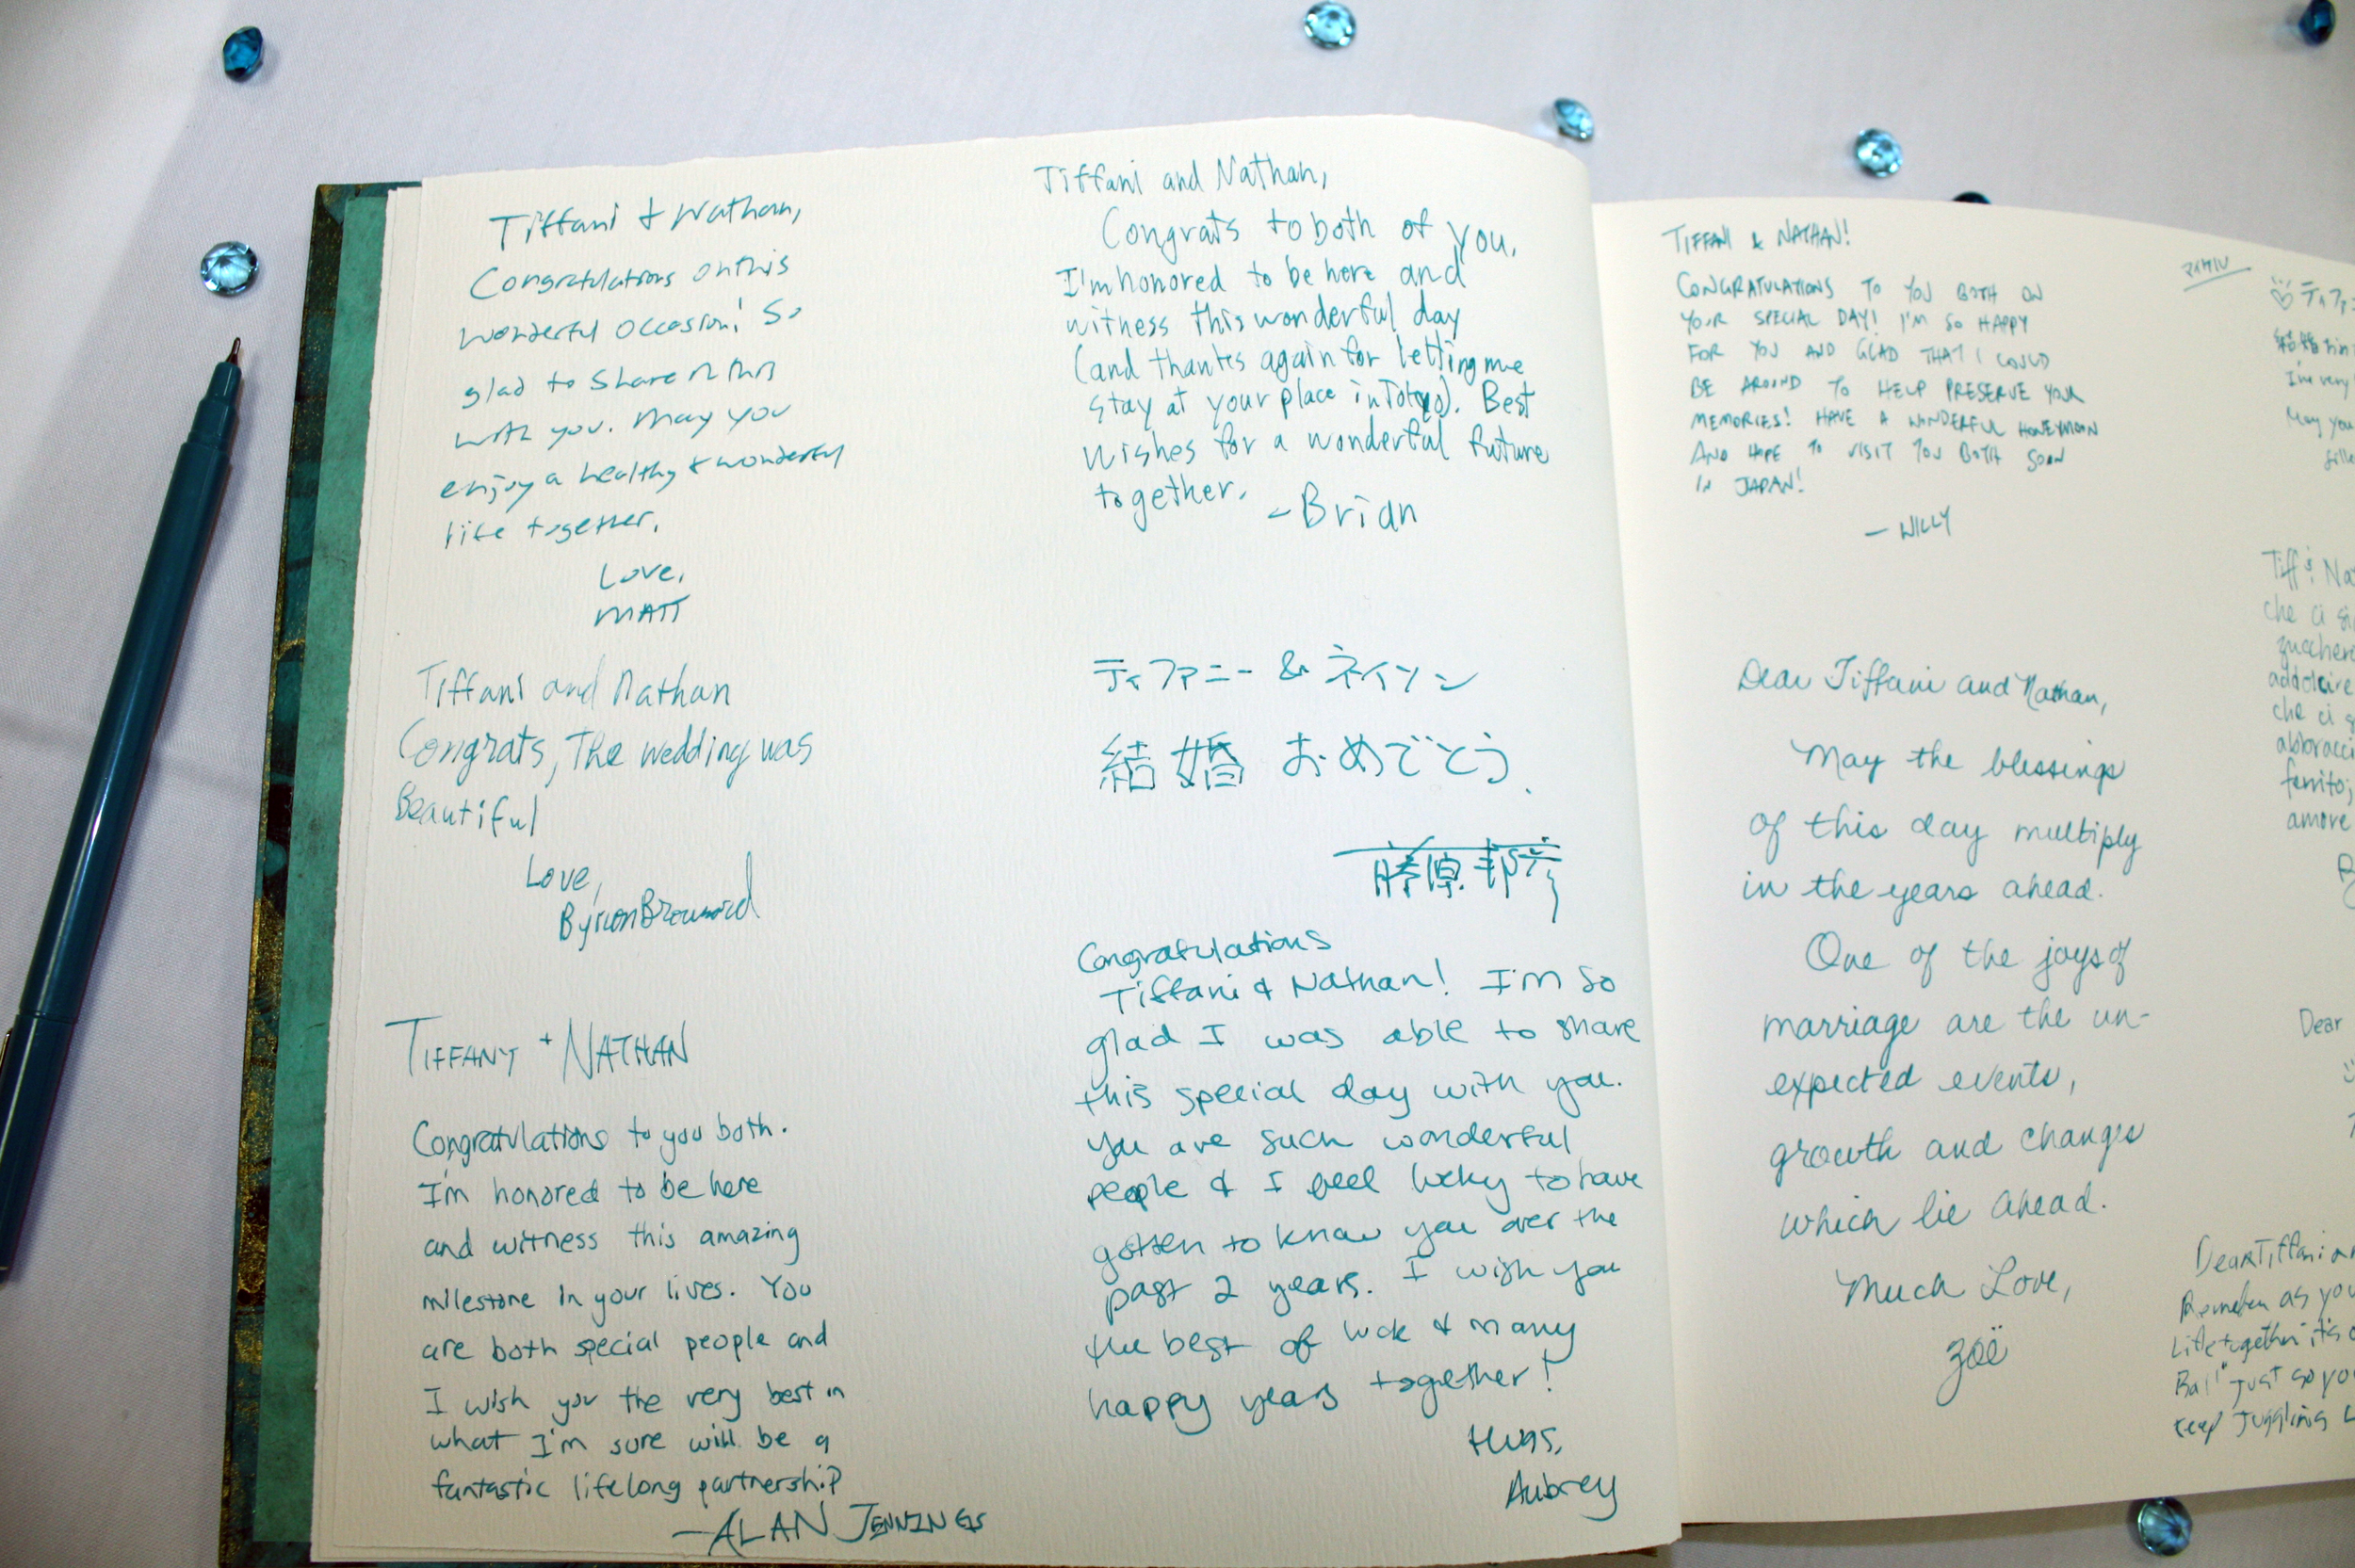 Tiffani & Nathan,
Congratulations on this
wonderful occasion! So
glad to share in this
with you. May you
enjoy a healthy & wonderful
life together.
Love,
MATT
Tiffani and Nathan
Congrats, The wedding was
Beautiful
Love,
Byron
TIFFANY + NATHAN
Congratulations to you both.
I'm honored to be here
and witness this amazing
milestone in your lives. You
are both special people and
I wish you the very best in
what I'm sure will be a
fantastic lifelong partnership
—ALAN JENNINGS
Tiffani and Nathan,
Congrats to both of you,
I'm honored to be here and
witness this wonderful day
(and thanks again for letting me
stay at your place in Tokyo). Best
wishes for a wonderful future
together.
-Brian
ティファニー & ネイソン
結婚 おめでとう.
藤原 邦彦
Congratulations
Tiffani & Nathan! I'm so
glad I was able to share
this special day with you.
You are such wonderful
people & I feel lucky to have
gotten to know you over the
past 2 years. I wish you
the best of luck & many
happy years together!
Hugs,
Aubrey
TIFFANI & NATHAN!
CONGRATULATIONS TO YOU BOTH ON
YOUR SPECIAL DAY! I'M SO HAPPY
FOR YOU AND GLAD THAT I COULD
BE AROUND TO HELP PRESERVE YOUR
MEMORIES! HAVE A WONDERFUL HONEYMOON
AND HOPE TO VISIT YOU BOTH SOON
IN JAPAN!
— WILLY
Dear Tiffani and Nathan,
May the blessings
of this day multiply
in the years ahead.
One of the joys of
marriage are the un-
expected events,
growth and changes
which lie ahead.
Much Love,
Zoë
マイケル
ティファ
結婚
I'm very
May you
Tiff
che ci
addolcire
che ci
amore
Dear
Dear Tiffani
Remember as you
Life together it's
Ball" just so you
keep juggling